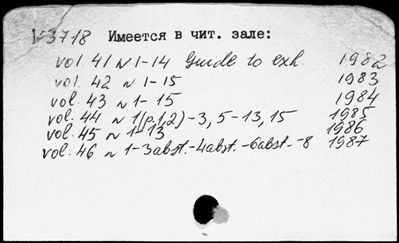 V3718 Имеется в чит. зале:
vol. 41 N 1-14 Guide to exh. 1982
vol. 42 N 1-15 1983
vol. 43 N 1-15 1984
vol. 44 N 1(p.1,2)-3, 5-13, 15 1985
vol. 45 N 1-13 1986
vol. 46 N 1-3abst.-4abst.-6abst.-8 1987